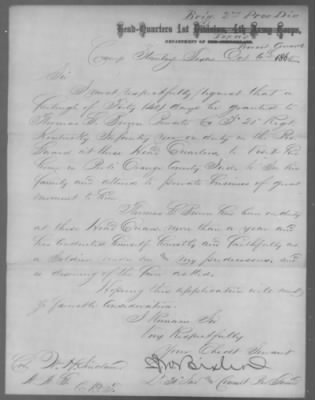 Brig 2nd Prov Div
Head-Quarters 1st Division, 4th Army Corps,
DEPARTMENT OF
Texas
Provost Guard
Camp Stanley Texas Oct 6th 1865
Sir
I most respectfully request that a
furlough of Forty (40) days be granted to
Thomas Private Co "I" 21" Regt
Kentucky Infantry now on duty in the Pro
Guard at these Head Quarters to visit his
home in Orange County Inds to see his
family and attend to private business of great
moment to him
Thomas has been on duty
at these Head Quars more than a year and
has conducted himself honestly and faithfully as
a soldier under me my predecessor and
is deserving of the favor asked.
Hoping this application will meet
favorable consideration.
I Remain Sir
Very Respectfully
Your Obedt Servant
Col. W. H. Sinclair
A. A. G.
Lt